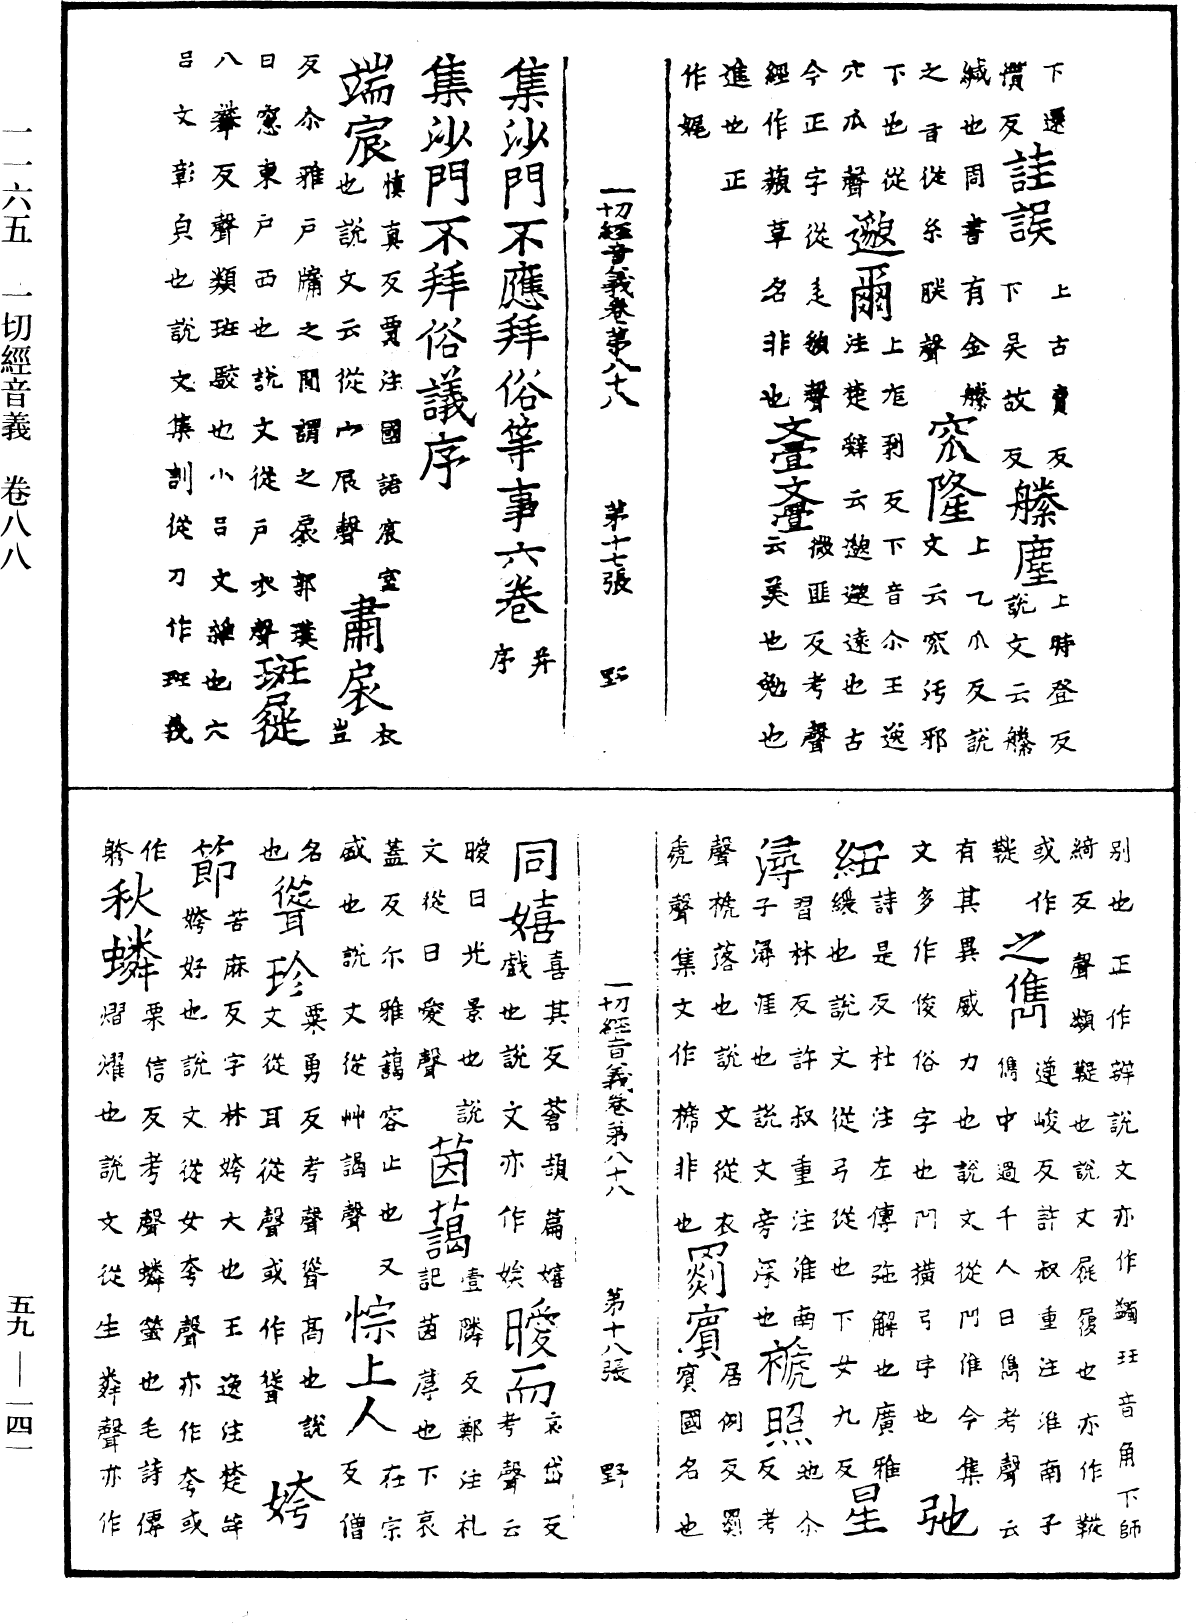 下還慣反 詿誤 上古賣反下吳故反 縢塵 上時登反說文云縢
緘也周書有金縢之音從糸朕聲 窊隆 上乙爪反說文云窊汚邪
下也從穴瓜聲 邈爾 上尨剥反下音尒王逸注楚辭云邈邈遠也古
今正字從辵貌聲經作藐草名非也 亹亹 微匪反考聲云美也勉也
進也正作娓
一切經音義卷第八十八 第十七張 野
集沙門不應拜俗等事六卷 并序
集沙門不拜俗議序
端宸 慎真反賈注國語宸室也說文云從宀辰聲 肅扆 衣豈
反尒雅戶牖之間謂之扆郭璞曰窓東戶西也說文從戶衣聲 斑屣
八蠻反聲類班駮也小呂文雜也六呂文彰皃也說文集訓從刀作班義
別也正作辯說文亦作躅玨音角下師綺反聲類鞮也說文屣履也亦作
或作 之雋 遵峻反許叔重注淮南子儁中過千人曰雋考聲云
有其異威力也說文從冂隹今集文多作俊俗字也冂橫弓字也 弛
紐 詩是反杜注左傳弛解也廣雅緩也說文從弓從也下女九反 星
潯 習林反許叔重注淮南子潯涯也說文旁深也 褫照 池尒反考
聲褫落也說文從衣虒聲集文作㯕非也 罽賓 居例反罽賓國名也
一切經音義卷第八十八 第十八張 野
同嬉 喜其反蒼頡篇嬉戲也說文亦作娭 曖而 哀岱反考聲云
曖日光景也說文從日愛聲 茵藹 壹隣反鄭注礼記茵蓐也下哀
蓋反尒雅藹容止也又盛也說文從艸謁聲 悰上人 在宗反僧
名也 聳珍 粟勇反考聲聳高也說文從耳從聲或作 姱
節 苦麻反字林姱大也王逸注楚辝姱好也說文從女夸聲亦作夸或
作 秋 粟信反考聲螢也毛詩傳熠燿也說文從生粦聲亦作
一一六五 一切經音義 卷八八
五九—一四一